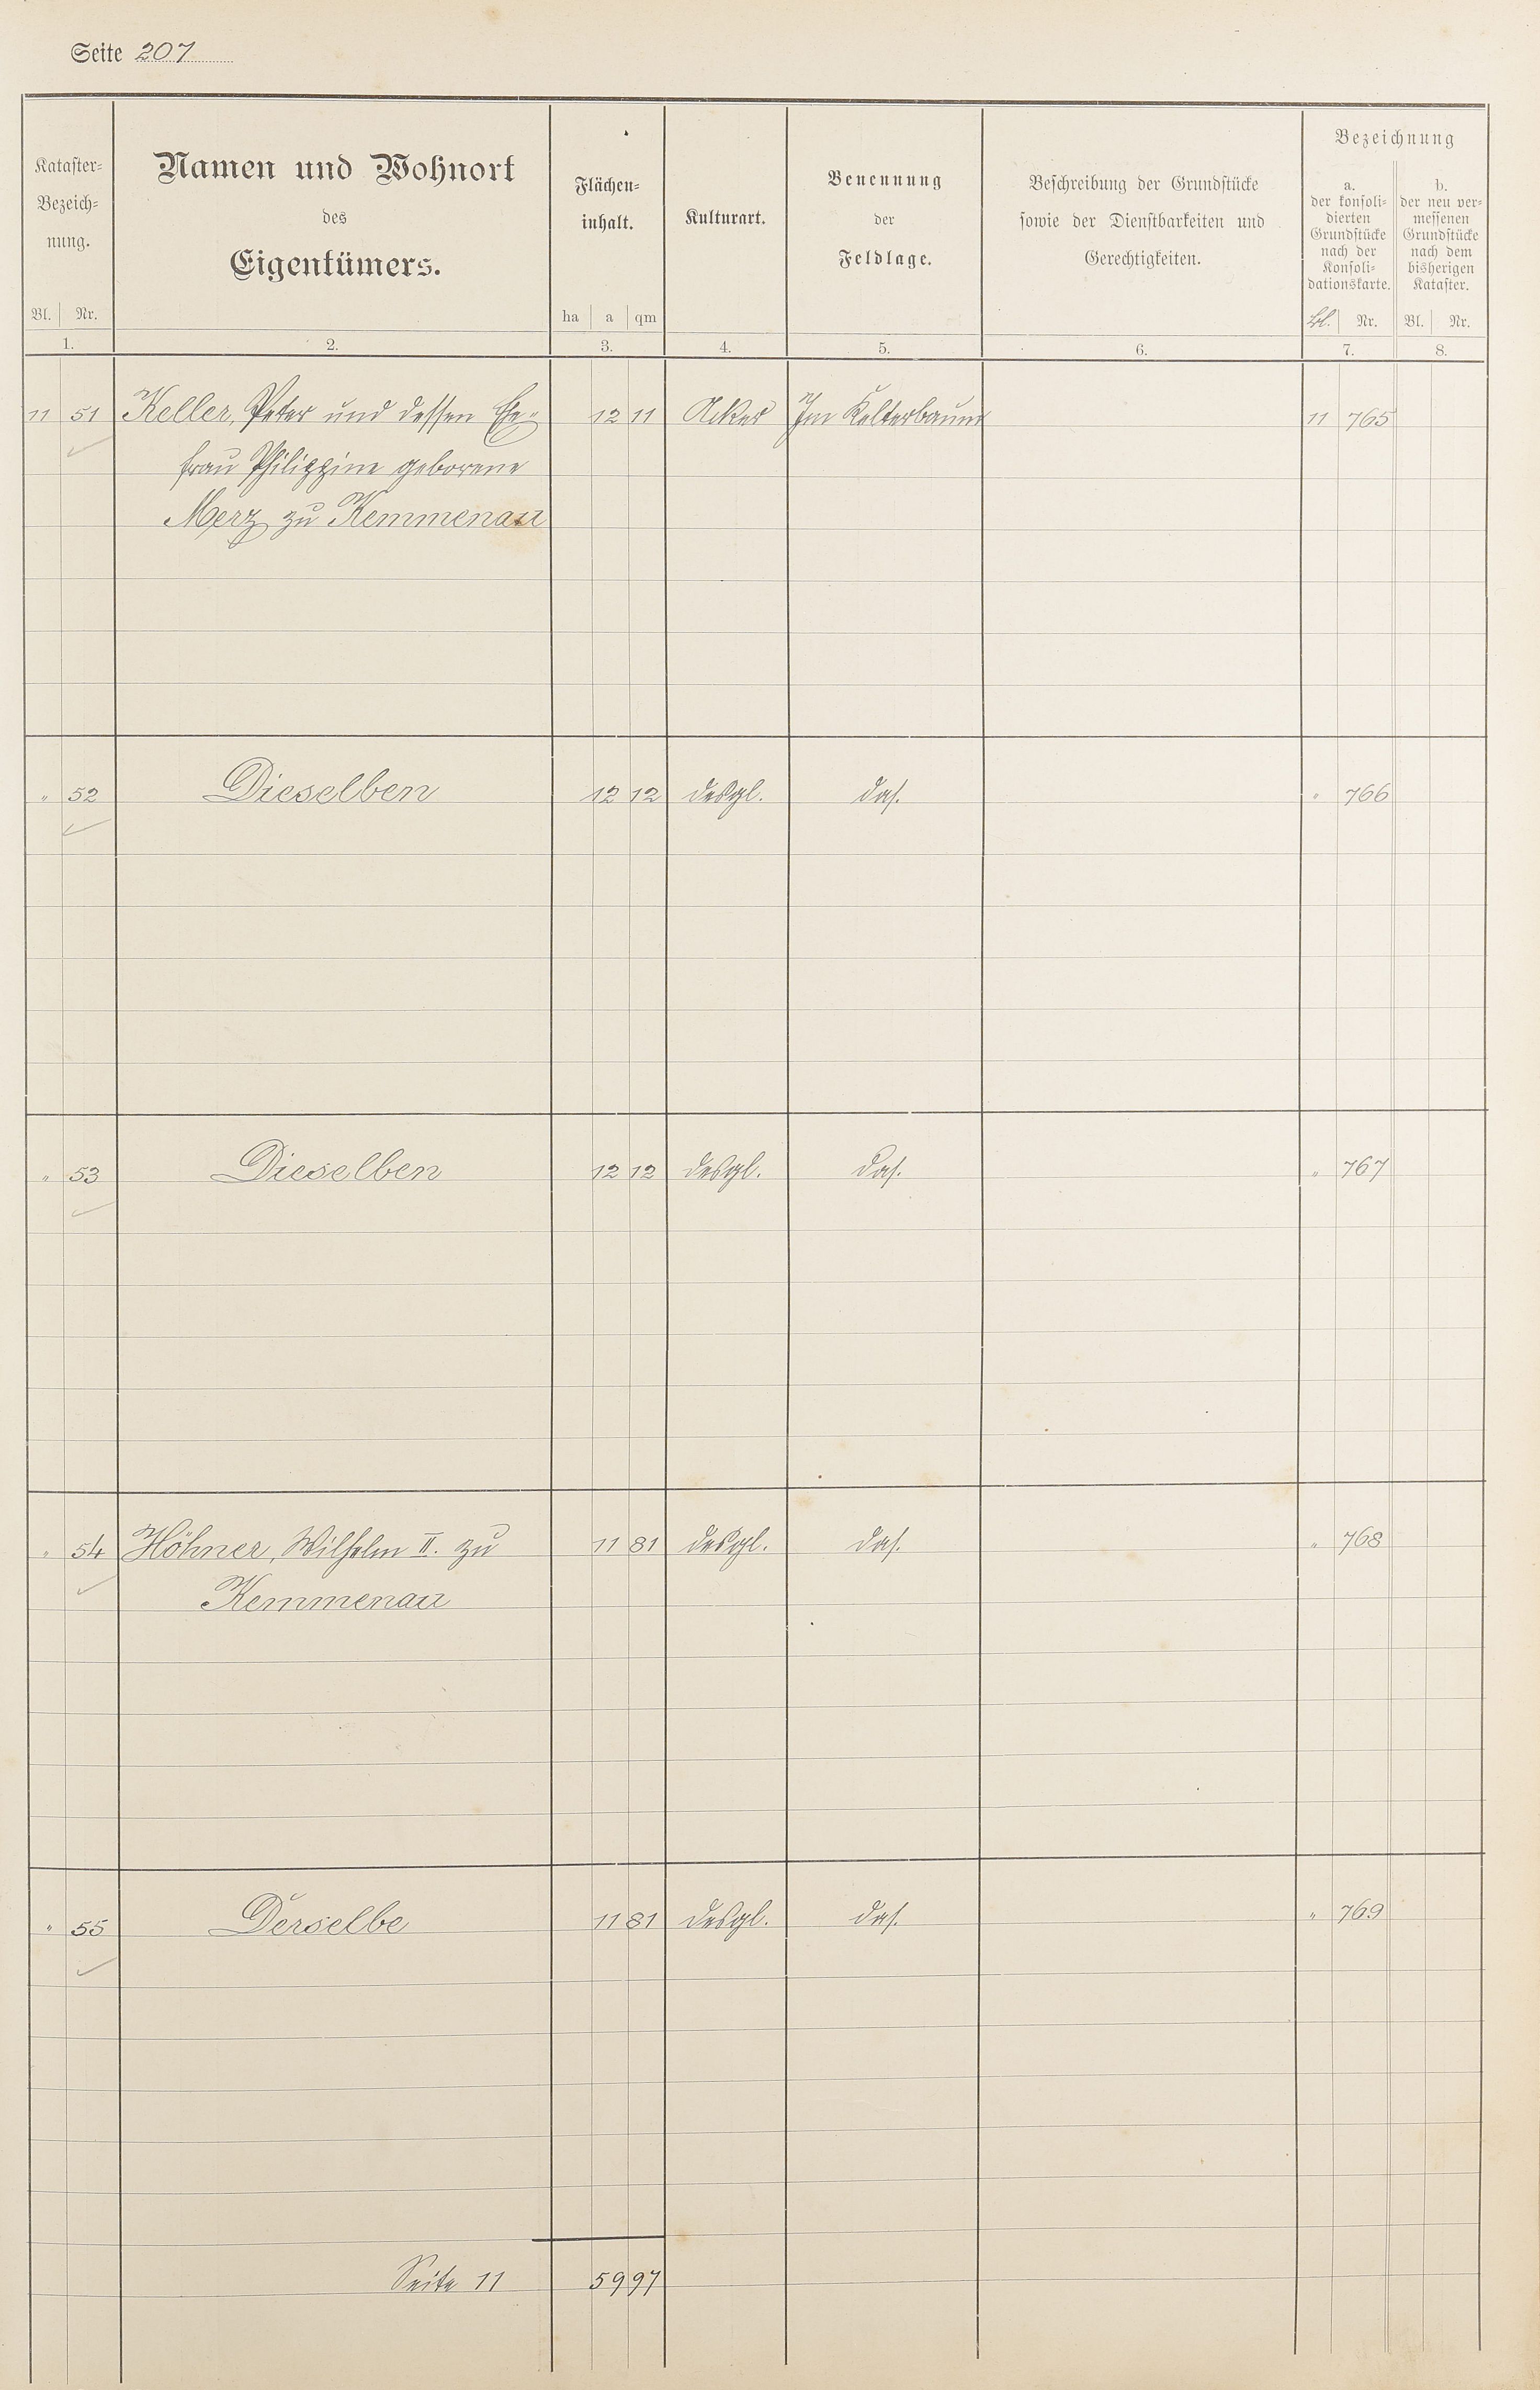 Seite 207
Kataster-
Bezeich-
nung.
Bl. Nr.
1.
Namen und Wohnort
des
Eigentümers.
2.
Flächen-
inhalt.
ha a qm
3.
Kulturart.
4.
Benennung
der
Feldlage.
5.
Beschreibung der Grundstücke
sowie der Dienstbarkeiten und
Gerechtigkeiten.
6.
Bezeichnung
a.
der konsoli-
dierten
Grundstücke
nach der
Konsoli-
dationskarte.
Bl. Nr.
7.
b.
der neu ver-
messenen
Grundstücke
nach dem
bisherigen
Kataster.
Bl. Nr.
8.
11 51 Keller, Peter und dessen Ehe- 12 11 Acker Im Kelterbaum 11 765
frau Philippine geborene
Merz zu Kemmenau
" 52 Dieselben 12 12 desgl. das. " 766
" 53 Dieselben 12 12 desgl. das. " 767
" 54 Höhner, Wilhelm II. zu 11 81 desgl. das. " 768
Kemmenau
" 55 Derselbe 11 81 desgl. das. " 769
Seite 11 59 97